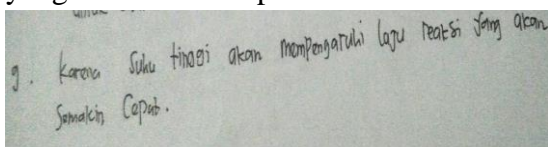 9. Karena Suhu tinggi akan mempengaruhi laju reaksi yang akan
Semakin Cepat.